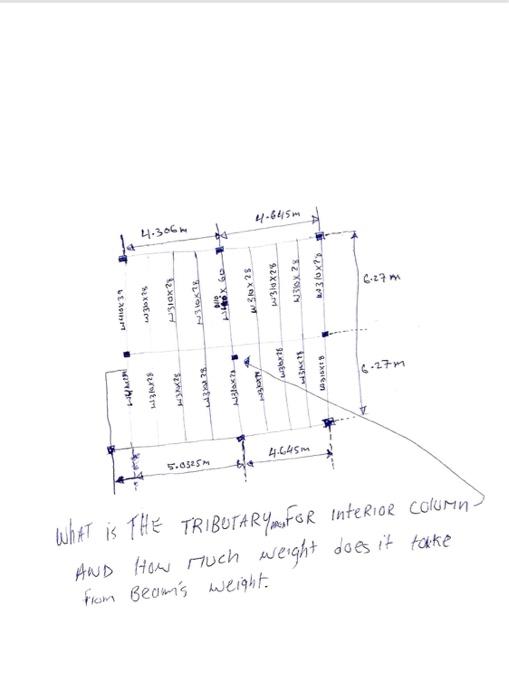 4.306m
4.645m
W410x39
W310x28
W310x28
W310x28
x 60
W310x28
W310x28
W310x28
W310x28
6.27m
W310x28
W310x28
W310x28
W310x28
W310x28
W310x28
W310x28
W310x28
6.27m
5.0325m
4.645m
WHAT is THE TRIBUTARY FOR INTERIOR COLUMN
AND HOW MUCH weight does it take
From Beam's weight.